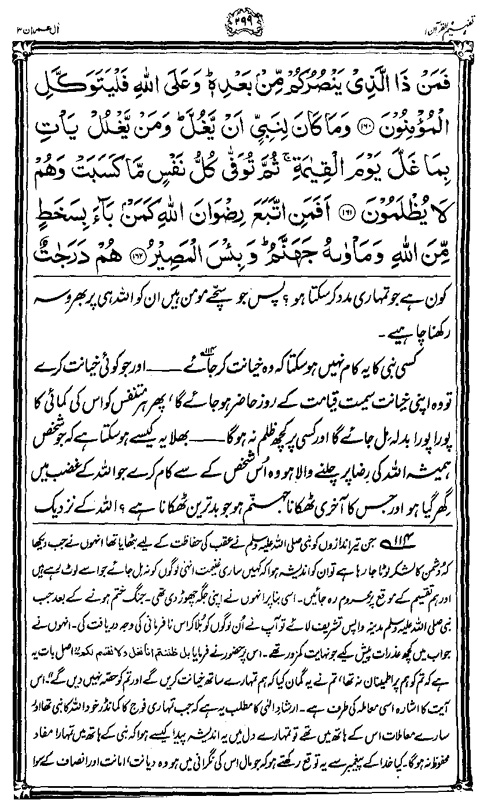 تفہیم القرآن ۱
۲۹۹
آل عمران ۳
فَمَنْ ذَا الَّذِيْ يَنْصُرُكُمْ مِّنْۢ بَعْدِهٖ ؕ وَعَلَى اللّٰهِ فَلْيَتَوَكَّلِ
الْمُؤْمِنُوْنَ ﴿۱۶۰﴾ وَمَا كَانَ لِنَبِيٍّ اَنْ يَّغُلَّ ؕ وَمَنْ يَّغْلُلْ يَاْتِ
بِمَا غَلَّ يَوْمَ الْقِيٰمَةِ ۚ ثُمَّ تُوَفّٰى كُلُّ نَفْسٍ مَّا كَسَبَتْ وَهُمْ
لَا يُظْلَمُوْنَ ﴿۱۶۱﴾ اَفَمَنِ اتَّبَعَ رِضْوَانَ اللّٰهِ كَمَنْۢ بَآءَ بِسَخَطٍ
مِّنَ اللّٰهِ وَمَاْوٰىهُ جَهَنَّمُ ؕ وَبِئْسَ الْمَصِيْرُ ﴿۱۶۲﴾ هُمْ دَرَجٰتٌ
کون ہے جو تمہاری مدد کر سکتا ہو؟ پس جو سچے مومن ہیں ان کو اللہ ہی پر بھروسہ
رکھنا چاہیے۔
کسی نبی کا یہ کام نہیں ہو سکتا کہ وہ خیانت کر جائے۱۱۴ــــ اور جو کوئی خیانت کرے
تو وہ اپنی خیانت سمیت قیامت کے روز حاضر ہو جائے گا، پھر ہر متنفس کو اس کی کمائی کا
پورا پورا بدلہ مل جائے گا اور کسی پر کچھ ظلم نہ ہوگا ــــ بھلا یہ کیسے ہو سکتا ہے کہ جو شخص
ہمیشہ اللہ کی رضا پر چلنے والا ہو وہ اُس شخص کے سے کام کرے جو اللہ کے غضب میں
گھِر گیا ہو اور جس کا آخری ٹھکانا جہنم ہو جو بدترین ٹھکانا ہے؟ اللہ کے نزدیک
۱۱۴ جن تیر اندازوں کو نبی صلی اللہ علیہ وسلم نے عقب کی حفاظت کے لیے بٹھایا تھا انہوں نے جب دیکھا
کہ دشمن کا لشکر لوٹا جا رہا ہے تو ان کو اندیشہ ہوا کہ کہیں ساری غنیمت انہی لوگوں کو نہ مل جائے جو اسے لوٹ رہے ہیں
اور ہم تقسیم کے موقع پر محروم رہ جائیں۔ اسی بنا پر انہوں نے اپنی جگہ چھوڑ دی تھی۔ جنگ ختم ہونے کے بعد جب
نبی صلی اللہ علیہ وسلم مدینہ واپس تشریف لائے تو آپ نے اُن لوگوں کو بُلا کر اس نافرمانی کی وجہ دریافت کی۔ انہوں نے
جواب میں کچھ عذرات پیش کیے جو نہایت کمزور تھے۔ اس پر حضور نے فرمایا بل ظننتم انا نغل ولا نقسم لکم۔ اصل بات یہ
ہے کہ تم کو ہم پر اطمینان نہ تھا، تم نے یہ گمان کیا کہ ہم تمہارے ساتھ خیانت کریں گے اور تم کو حصہ نہیں دیں گے“۔ اس
آیت کا اشارہ اسی معاملہ کی طرف ہے۔ ارشادِ الہٰی کا مطلب یہ ہے کہ جب تمہاری فوج کا کمانڈر خود اللہ کا نبی تھا اور
سارے معاملات اس کے ہاتھ میں تھے تو تمہارے دل میں یہ اندیشہ پیدا کیسے ہوا کہ نبی کے ہاتھ میں تمہارا مفاد
محفوظ نہ ہوگا۔ کیا خدا کے پیغمبر سے یہ توقع رکھتے ہو کہ جو مال اس کی نگرانی میں ہو وہ دیانت، امانت اور انصاف کے سوا